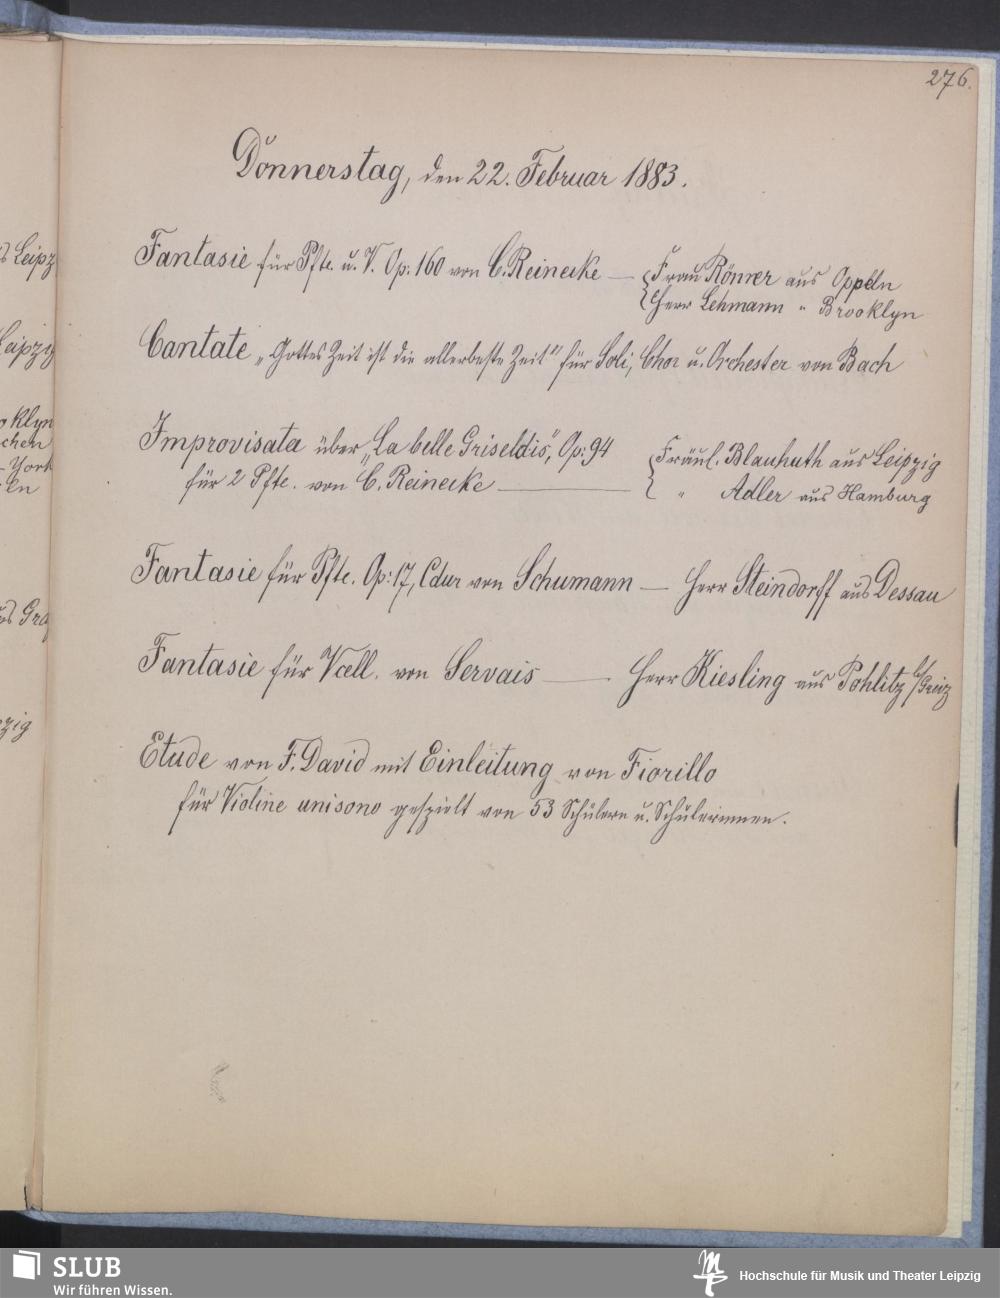 276.
Donnerstag, den 22. Februar 1883.
Fantasie für Pfte. u. V. Op: 160 von C. Reinecke — Frau Römer aus Oppeln
Herr Lehmann " Brooklyn
Cantate „Gottes Zeit ist die allerbeste Zeit" für Soli, Chor u. Orchester von Bach
Improvisata über „La belle Griseldis", Op: 94
für 2 Pfte. von C. Reinecke — Fräul. Blauhuth aus Leipzig
" Adler aus Hamburg
Fantasie für Pfte. Op: 17, Cdur von Schumann — Herr Steindorff aus Dessau
Fantasie für Vcell. von Servais — Herr Kiesling aus Pohlitz b/Greiz
Etude von F. David mit Einleitung von Fiorillo
für Violine unisono gespielt von 53 Schülern u. Schülerinnen.
s Leipz
Leipzig
oklyn
chen
-York
en
us Gra
zig
SLUB
Wir führen Wissen.
Hochschule für Musik und Theater Leipzig